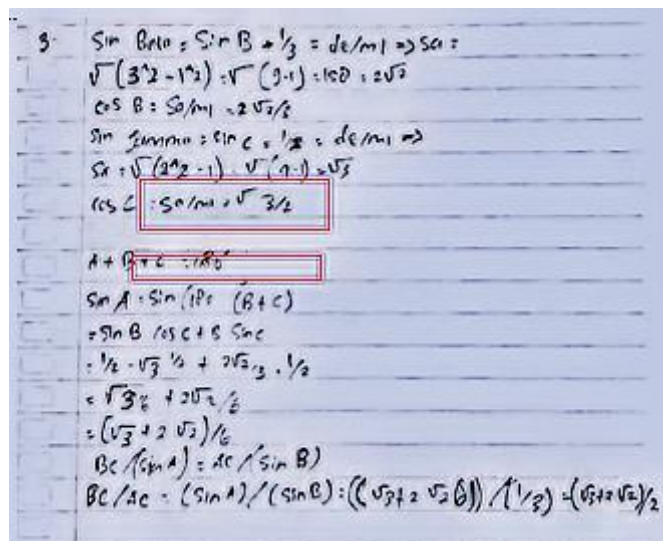 3. Sin Beta = Sin B = 1/3 = de/mi => Sa =
√(3^2 - 1^2) = √(9-1) = √8 = 2√2
cos B = Sa/mi = 2√2/3
Sin gamma = sin C = 1/2 = de/mi =>
Sa = √(2^2 - 1) = √(4-1) = √3
cos C = Sa/mi = √3/2
A + B + C = 180°
Sin A = Sin (180 (B+C)
= Sin B cos C + B Sin C
= 1/2 - √3 1/2 + 2√2/3 . 1/2
= √3/6 + 2√2/6
= (√3 + 2√2)/6
BC/(sin A) = AC/(Sin B)
BC/AC = (Sin A)/(Sin B) = ((√3+2√2 6)) / (1/3) = (√3+2√2)/2